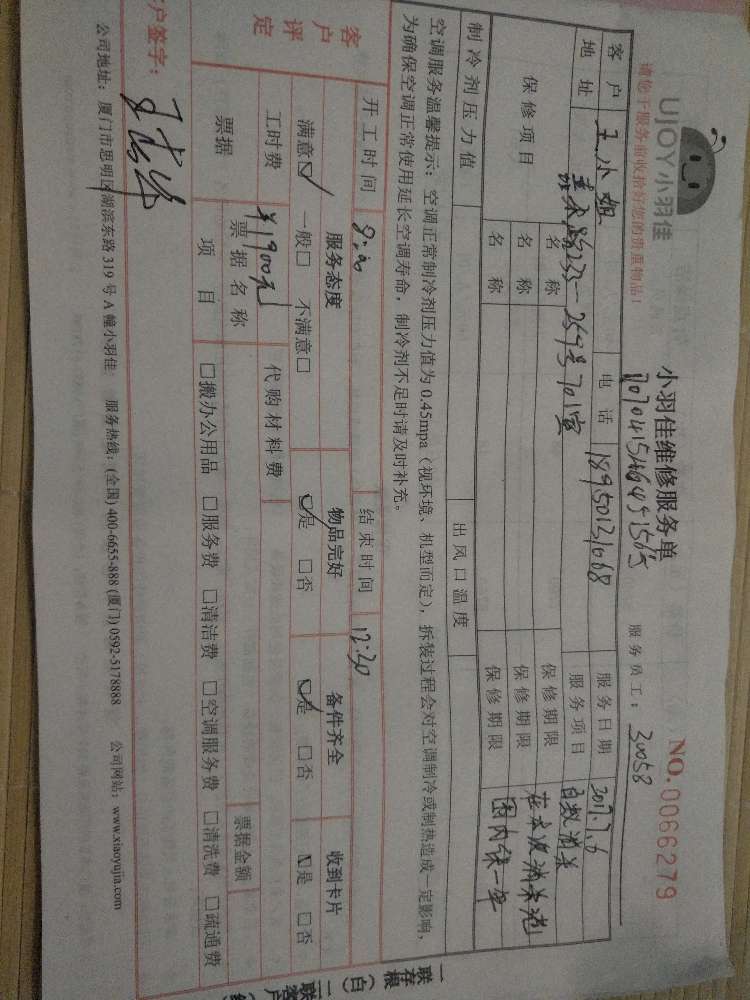 UJOY小羽佳
小羽佳维修服务单
NO.0066279
请您于服务前收拾好您的贵重物品！
服务员工：30058
客户 王小姐 电话 18950131068 服务日期 2017.7.6
地址 233-259号701室 服务项目 白蚁消杀
保修项目 名称 保修期限 在本次消杀范
名称 保修期限 围内保一年
名称 保修期限
制冷剂压力值 出风口温度
空调服务温馨提示：空调正常制冷剂压力值为0.45mpa（视环境、机型而定），拆装过程会对空调制冷或制热造成一定影响，
为确保空调正常使用延长空调寿命，制冷剂不足时请及时补充。
开工时间 8:00 结束时间 12:30
客户评定
服务态度 物品完好 备件齐全 收到卡片
满意☑ 一般□ 不满意□ ☑是 □否 ☑是 □否 ☑是 □否
工时费 ¥1900元 代购材料费
票据 票据名称 票据金额
项目 □搬办公用品 □服务费 □清洁费 □空调服务费 □清洗费 □疏通费
客户签字：
公司地址：厦门市思明区湖滨东路319号A幢小羽佳 服务热线：(全国) 400-6655-888 (厦门) 0592-5178888 公司网站：www.xiaoyujia.com
一联存根（白）二联客户